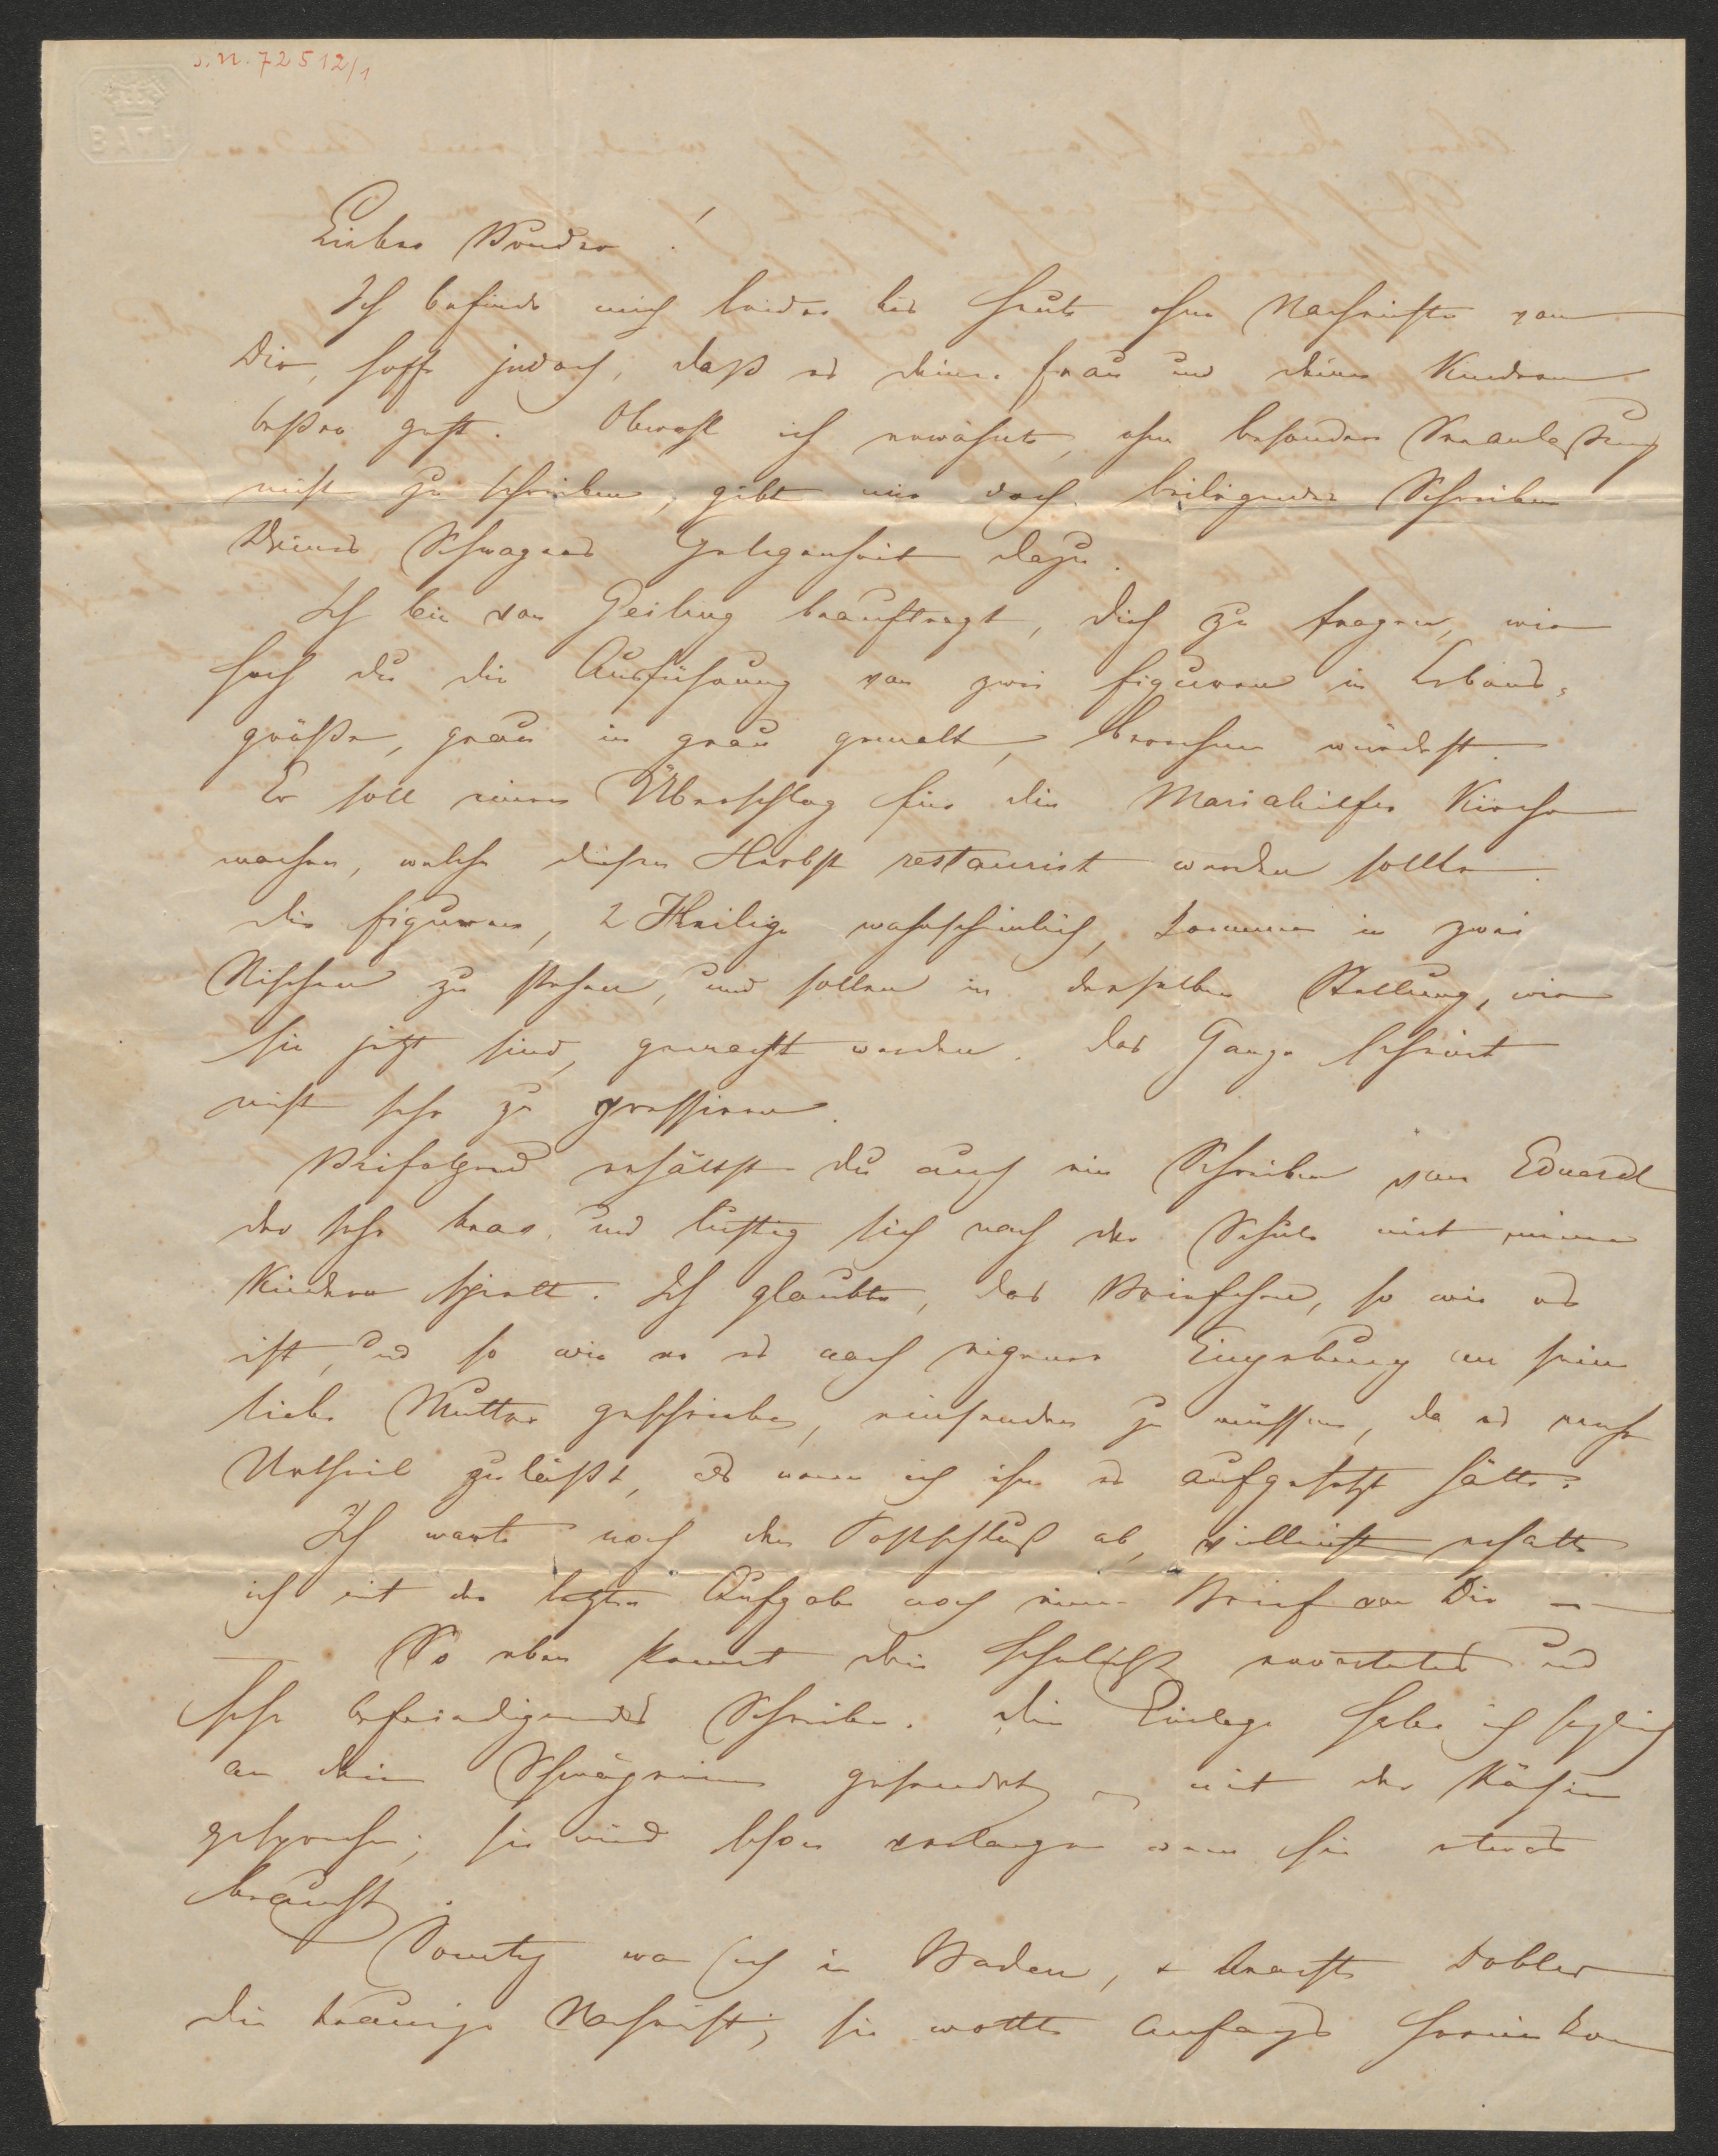 J. N. 72512/1
BATH
Lieber Bruder!
Ich befinde mich leider bis heute ohne Nachricht von
Dir, hoffe jedoch, daß es deiner Frau und deinen Kindern
beßer geht. Obwohl ich erwähnte, ohne besondere Veranlaßung
nicht zu schreiben, gibt mir doch beiligendes Schreiben
Deines Schwagers Gelegenheit dazu.
Ich bin von Geiling beauftragt, dich zu fragen, wie
hoch du die Ausführung von zwei Figuren in Lebens-
größe, grau in grau gemalt, berechnen würdest.
Er soll einen Überschlag für die Mariahilfer Kirche
machen, welche diesen Herbst restaurirt werden sollte.
Die Figuren, 2 Heilige wahrscheinlich, kommen in zwei
Nischen zu stehen, und sollen in derselben Stellung, wie
sie jetzt sind, gemacht werden. Das Ganze scheint
nicht sehr zu pressiren.
Beifolgend erhältst du auch ein Schreiben von Eduard
der sehr brav und lustig sich nach der Schule mit meinen
Kindern spielt. Ich glaubte, das Briefchen, so wie es
ist, und so wie er es nach eigener Eingebung an seine
liebe Mutter geschrieben, einsenden zu müssen, da es mehr
Urtheil zuläßt, als wenn ich ihm es aufgesetzt hätte.
Ich warte noch den Postschluß ab, vielleicht erhalte
ich mit der letzten Aufgabe noch einen Brief von Dir —
— So eben kommt dein erwartetes und
sehr befriedigendes Schreiben. Die Einlage habe ich sogleich
an deine Schwägerinn gesendet, mit der Köchin
gesprochen; sie wird schon verlangen wenn sie etwas
braucht.
Sonntag war ich in Baden, & brachte Dobler
die traurige Nachricht; sie wollte Anfangs